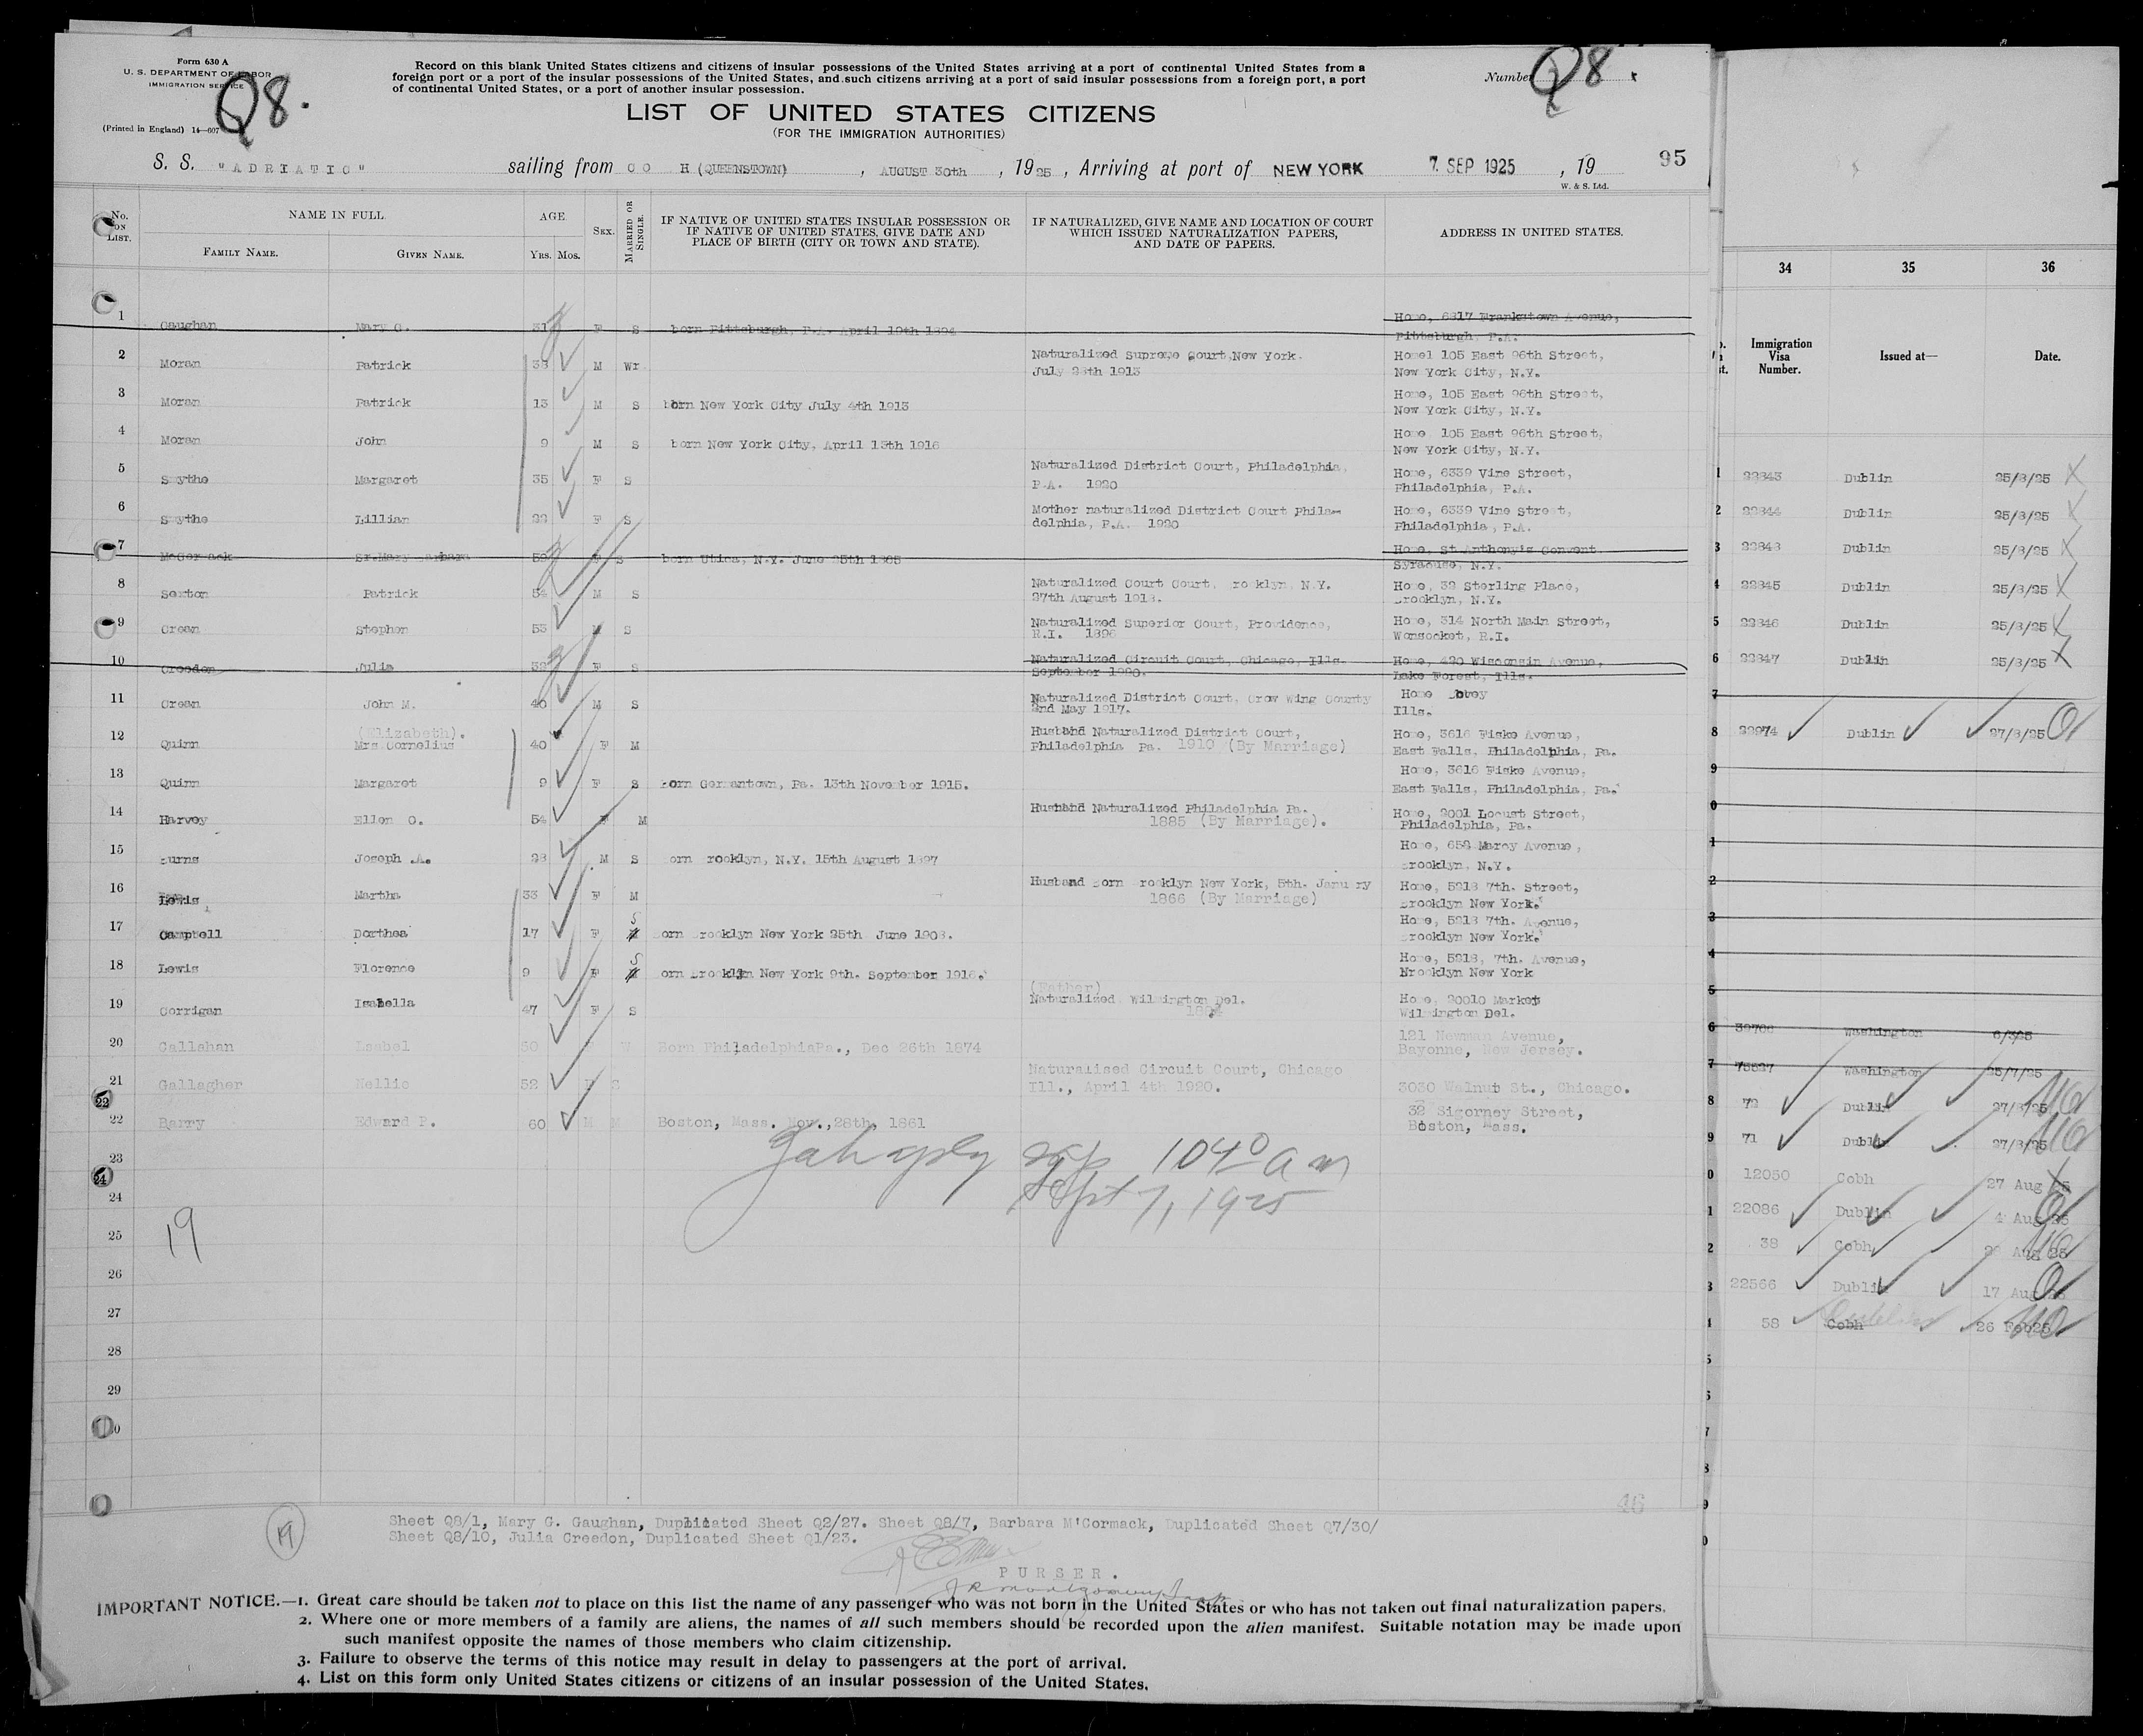 Form 630 A
U. S. DEPARTMENT OF LABOR
IMMIGRATION SERVICE
Q8.
(Printed in England) 14—607
Record on this blank United States citizens and citizens of insular possessions of the United States arriving at a port of continental United States from a
foreign port or a port of the insular possessions of the United States, and such citizens arriving at a port of said insular possessions from a foreign port, a port
of continental United States, or a port of another insular possession.
Number Q8
LIST OF UNITED STATES CITIZENS
(FOR THE IMMIGRATION AUTHORITIES)
S. S. "ADRIATIC" sailing from CO H (QUEENSTOWN), AUGUST 30th, 1925, Arriving at port of NEW YORK 7 SEP 1925, 19
95
W. & S. Ltd.
No. ON LIST.
NAME IN FULL.
FAMILY NAME. GIVEN NAME.
AGE.
YRS. MOS.
SEX.
MARRIED OR SINGLE.
IF NATIVE OF UNITED STATES INSULAR POSSESSION OR
IF NATIVE OF UNITED STATES, GIVE DATE AND
PLACE OF BIRTH (CITY OR TOWN AND STATE).
IF NATURALIZED, GIVE NAME AND LOCATION OF COURT
WHICH ISSUED NATURALIZATION PAPERS,
AND DATE OF PAPERS.
ADDRESS IN UNITED STATES.
1 Gaughan Mary G. 31 F S born Pittsburgh, P.A. April 19th 1894 Home, 6817 Frankstown Avenue,
Pittsburgh, P.A.
2 Moran Patrick 38 M Wr Naturalized Supreme Court, New York. Home 105 East 96th Street,
July 28th 1913 New York City, N.Y.
3 Moran Patrick 13 M S born New York City July 4th 1913 Home, 105 East 96th Street,
New York City, N.Y.
4 Moran John 9 M S born New York City, April 13th 1916 Home 105 East 96th Street,
New York City, N.Y.
5 Smythe Margaret 35 F S Naturalized District Court, Philadelphia, Home, 6339 Vine Street,
P.A. 1920 Philadelphia, P.A.
6 Smythe Lillian 22 F S Mother naturalized District Court Phila- Home, 6339 Vine Street,
delphia, P.A. 1920 Philadelphia, P.A.
7 McCormack Sr.Mary Barbara 59 F S born Utica, N.Y. June 25th 1865 Home, St Anthony's Convent
Syracuse, N.Y.
8 Sexton Patrick 54 M S Naturalized Court Court, ro klyn, N.Y. Home, 32 Sterling Place,
27th August 1918. Brooklyn, N.Y.
9 Crean Stephen 53 M S Naturalized Superior Court, Providence, Home, 314 North Main Street,
R.I. 1896 Wonsocket, R.I.
10 Creedon Julia 32 F S Naturalized Circuit Court, Chicago, Ills. Home, 420 Wisconsin Avenue,
September 1920. Lake Forest, Ills.
11 Crean John M. 40 M S Naturalized District Court, Crow Wing County Home Lovey
2nd May 1917. Ills.
12 Quinn (Elizabeth). Mrs Cornelius 40 F M Husband Naturalized District Court, Home, 3616 Fiske Avenue,
Philadelphia Pa. 1910 (By Marriage) East Falls, Philadelphia, Pa.
13 Quinn Margaret 9 F S Born Germantown, Pa. 13th November 1915. Home, 3616 Fiske Avenue,
East Falls, Philadelphia, Pa.
14 Harvey Ellen C. 54 F M Husband Naturalized Philadelphia Pa. Home, 2001 Locust Street,
1885 (By Marriage). Philadelphia, Pa.
15 Burns Joseph .A. 28 M S Born rooklyn, N.Y. 15th August 1897 Home, 658 Marcy Avenue,
Brooklyn, N.Y.
16 Lewis Martha 33 F M Husband Born Brooklyn New York, 5th. January Home, 5918 7th. Street,
1866 (By Marriage) Brooklyn New York.
17 Campbell Dorthea 17 F S Born Brooklyn New York 25th June 1908. Home, 5918 7th. Avenue,
Brooklyn New York.
18 Lewis Florence 9 F S orn Brooklyn New York 9th. September 1916. Home, 5918, 7th. Avenue,
Brooklyn New York
19 Corrigan Isabella 47 F S (Father)
Naturalized, Wilmington Del. Home, 20010 Market
Wilmington Del.
20 Callahan Lsabel 50 W Born PhiladelphiaPa., Dec 26th 1874 121 Newman Avenue,
Bayonne, New Jersey.
21 Gallagher Nellie 52 F S Naturalised Circuit Court, Chicago
Ill., April 4th 1920. 3030 Walnut St., Chicago.
22 Barry Edward P. 60 M M Boston, Mass. Nov.,28th, 1861 32 Sigorney Street,
Boston, Mass.
23
24
1040 am
Sept 7, 1925
25 19
26
27
28
29
46
19
Sheet Q8/1, Mary G. Gaughan, Duplicated Sheet Q2/27. Sheet Q8/7, Barbara M'Cormack, Duplicated Sheet Q7/30/
Sheet Q8/10, Julia Creedon, Duplicated Sheet Q1/23.
PURSER.
IMPORTANT NOTICE.—1. Great care should be taken not to place on this list the name of any passenger who was not born in the United States or who has not taken out final naturalization papers.
2. Where one or more members of a family are aliens, the names of all such members should be recorded upon the alien manifest. Suitable notation may be made upon
such manifest opposite the names of those members who claim citizenship.
3. Failure to observe the terms of this notice may result in delay to passengers at the port of arrival.
4. List on this form only United States citizens or citizens of an insular possession of the United States.
34 35 36
Immigration Visa Number. Issued at— Date.
1 22843 Dublin 25/8/25
2 22844 Dublin 25/8/25
3 22848 Dublin 25/8/25
4 22845 Dublin 25/8/25
5 22846 Dublin 25/8/25
6 22847 Dublin 25/8/25
7
8 22974 Dublin 27/8/25
9
0
1
2
3
4
5
6 Washington
7 Washington 25/7/25
8 72 Dublin 27/8/25
9 71 Dublin 27/8/25
0 12050 Cobh 27 Aug 25
1 22086 Dublin 4 Aug 25
2 38 Cobh Aug 25
3 22566 Dublin 17 Aug
58 Cobh 26 Feb25